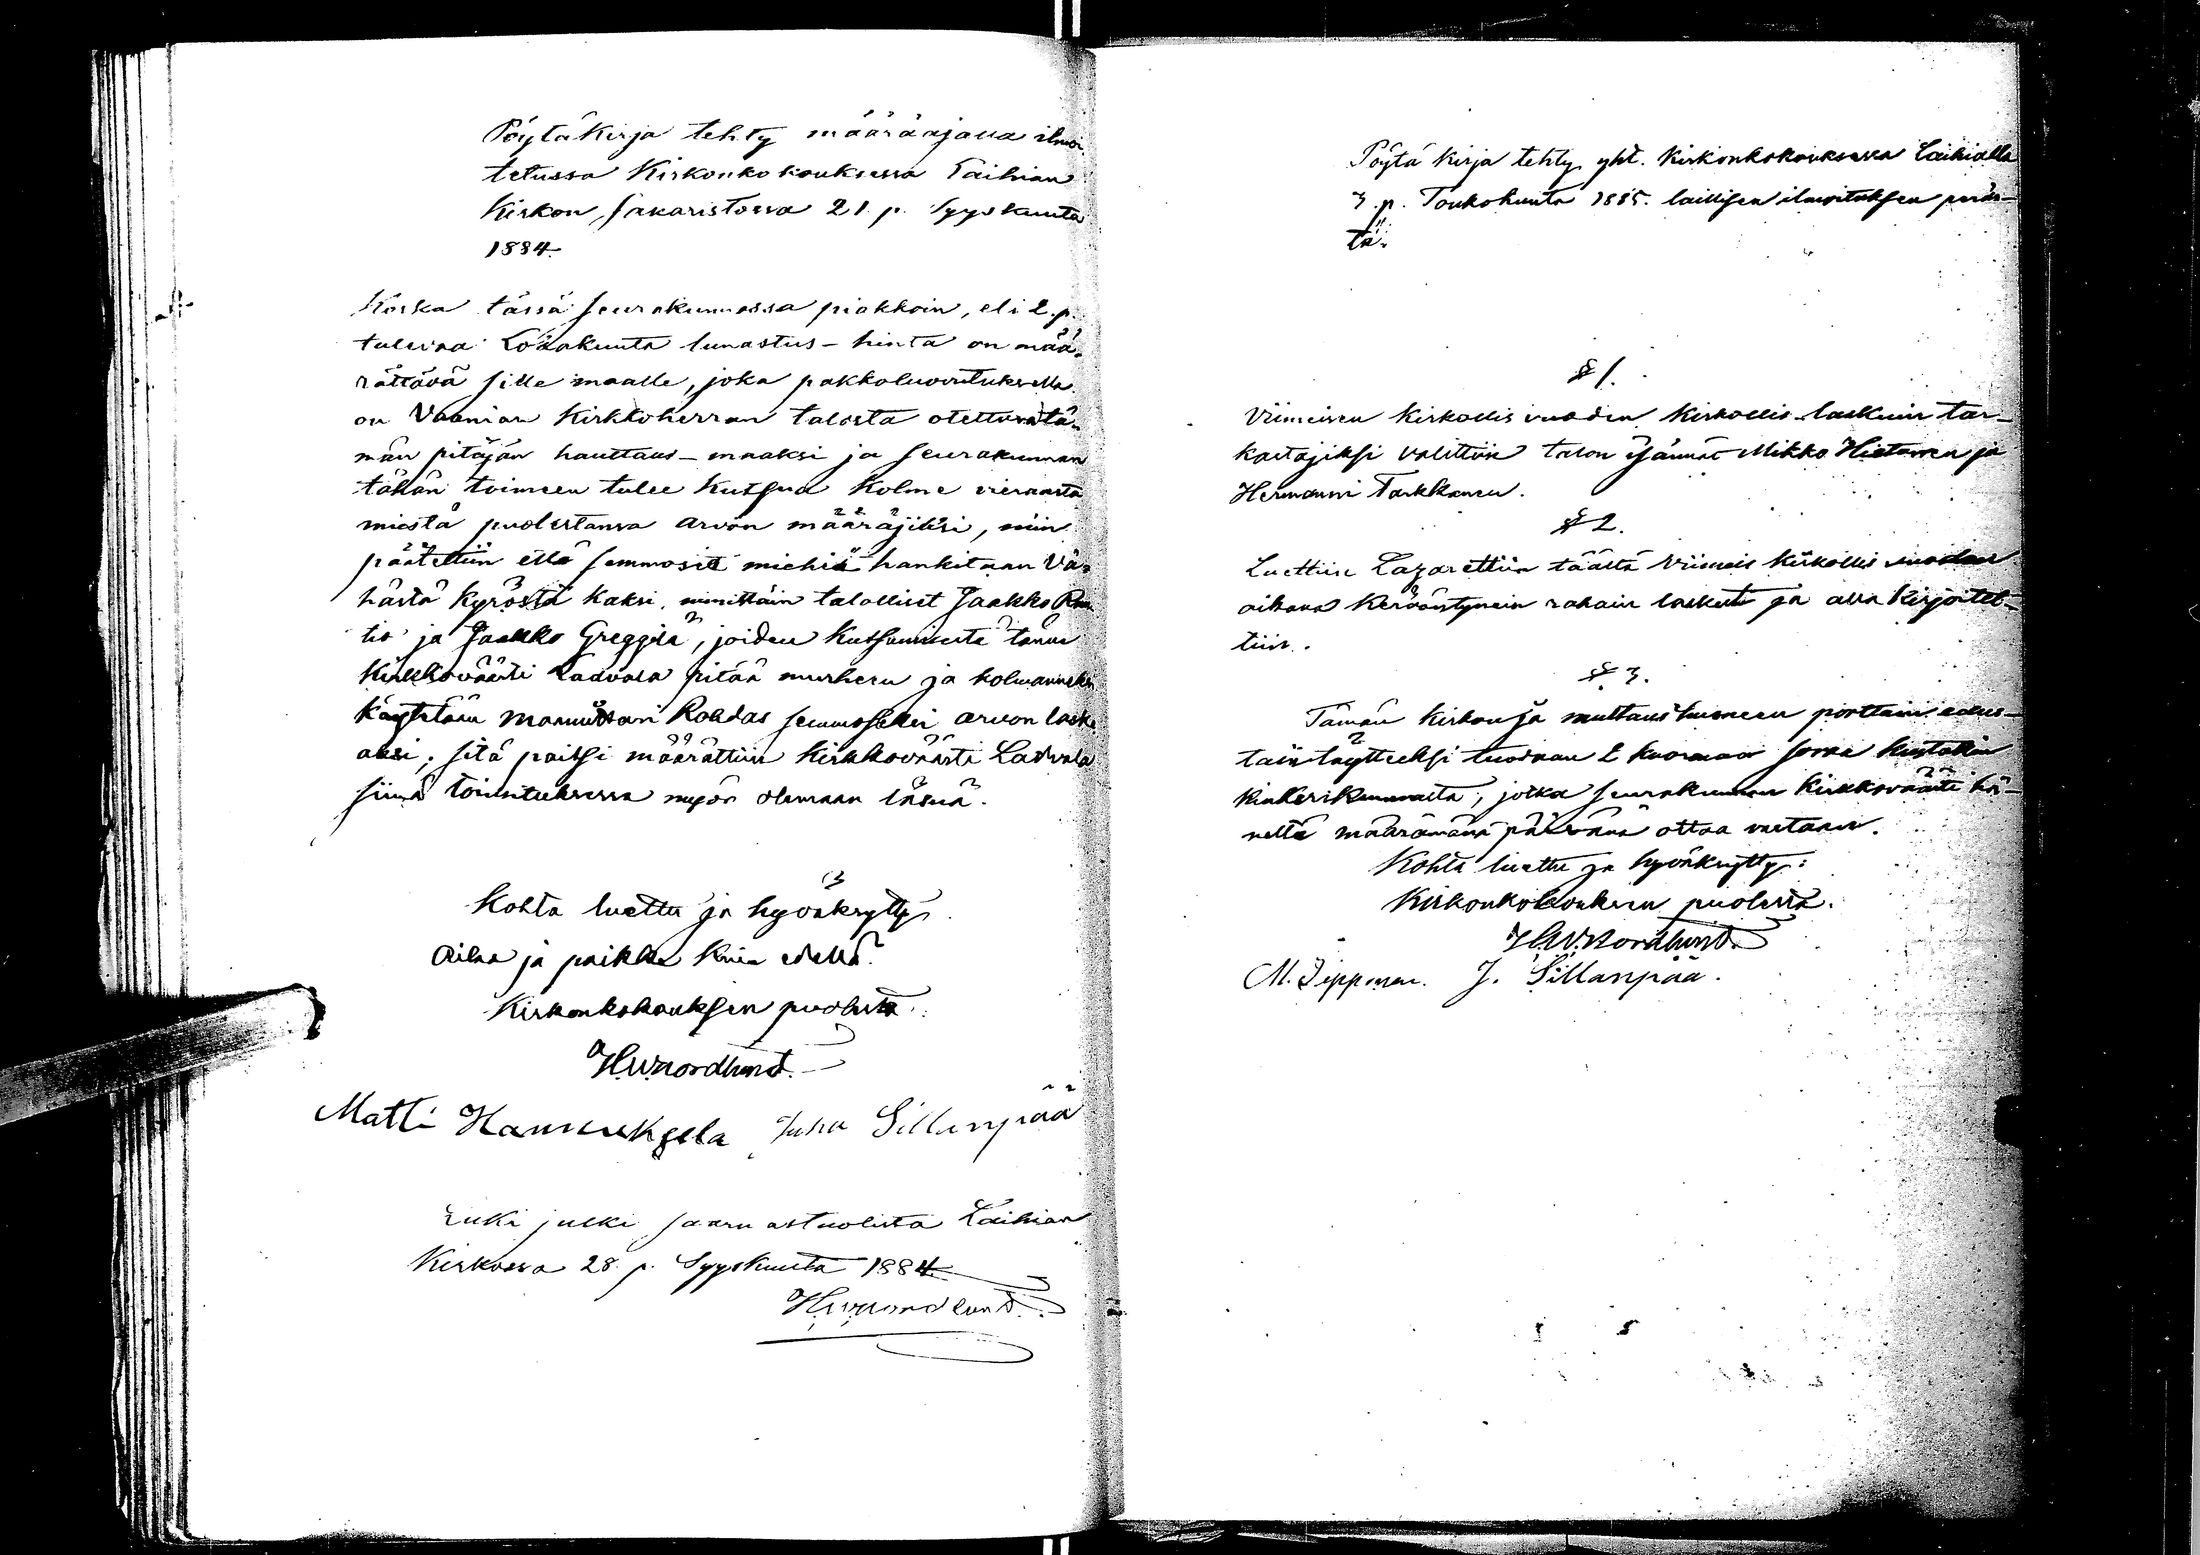 Pöytäkirja tehty määräajalla ilmoi
tetussa Kirkonkokouksessa Laihian
Kirkon Sakaristossa 21. p. Syyskuuta
1884.
Koska tässä seurakunnassa piakkoin, eli 2. p.
tulevaa Lokakuuta lunastus-hinta on mää-
rättävä sille maalle, joka pakkoluovutuksella
on Vaanian Kirkkoherran talosta otettava tä-
män pitäjän hauttaus-maaksi ja seurakunnan
tähän toimeen tulee kutsua kolme vierasta
miestä puolestansa arvon määräjiksi, niin
päätettiin että semmosia miehiä hankitaan Vä-
hästä Kyröstä kaksi, nimittäin talolliset Jaakko
tio ja Jaakko Greggilä, joiden kutsumisesta tänne
Kirkkovääri Ladvala pitää murheen ja kolmanneksi
käytetään maanmittari Roldas semmoseksi arvon laski
aksi; sitä paitsi määrättiin Kirkkoväärti Ladvala
siinä toimituksessa myös olemaan läsnä.
Kohta luettu ja hyväksytty
Aika ja paikka kuin edellä.
Kirkonkokouksen puolesta:
H.W. Nordlund.
Matti Hannuksela Juha Sillanpää
Luki julki saarnastuolista Laihian
Kirkossa 28. p. Syyskuuta 1884
H.W. Nordlund.
Pöytä Kirja tehty yht. Kirkonkokouksessa Laihialla
3. p. Toukokuuta 1885. laillisen ilmoituksen peräs-
tä.
§ 1.
Viimeisen Kirkollis vuoden Kirkollis laskuin tar-
kastajiksi valittiin talon isännät Mikko Hietanen ja
Hermanni Tarkkanen.
§ 2.
Luettiin Lazarettiin täältä viimeis kirkollis vuoden
aikana kerääntynein rahain laskut ja alla kirjoitet-
tiin.
§ 3.
Tämän kirkon ja multaus huoneen porttain edus-
tain täytteeksi tuodaan 2 kuormaa soraa kustakin
kinkerikunnasta, jotka seurakunnan kirkkoväärti hä-
neltä määrämänä päivänä ottaa vastaan.
Kohta luettu ja hyväksytty:
Kirkonkokouksen puolesta.
H.W. Nordlund.
M. Sepponen. J. Sillanpää.